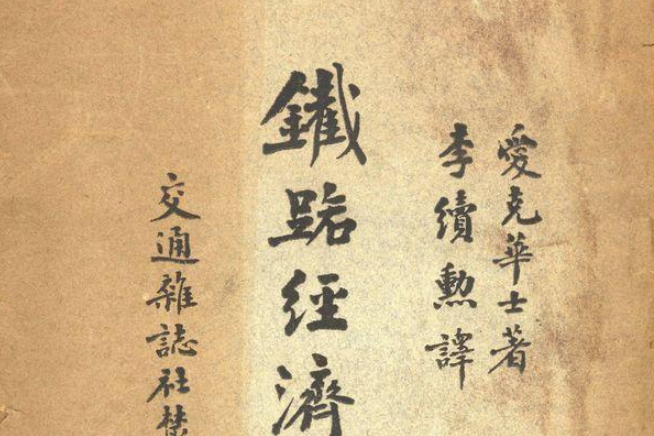 愛克華士著
李續勲譯
鐵路經濟
交通雜誌社